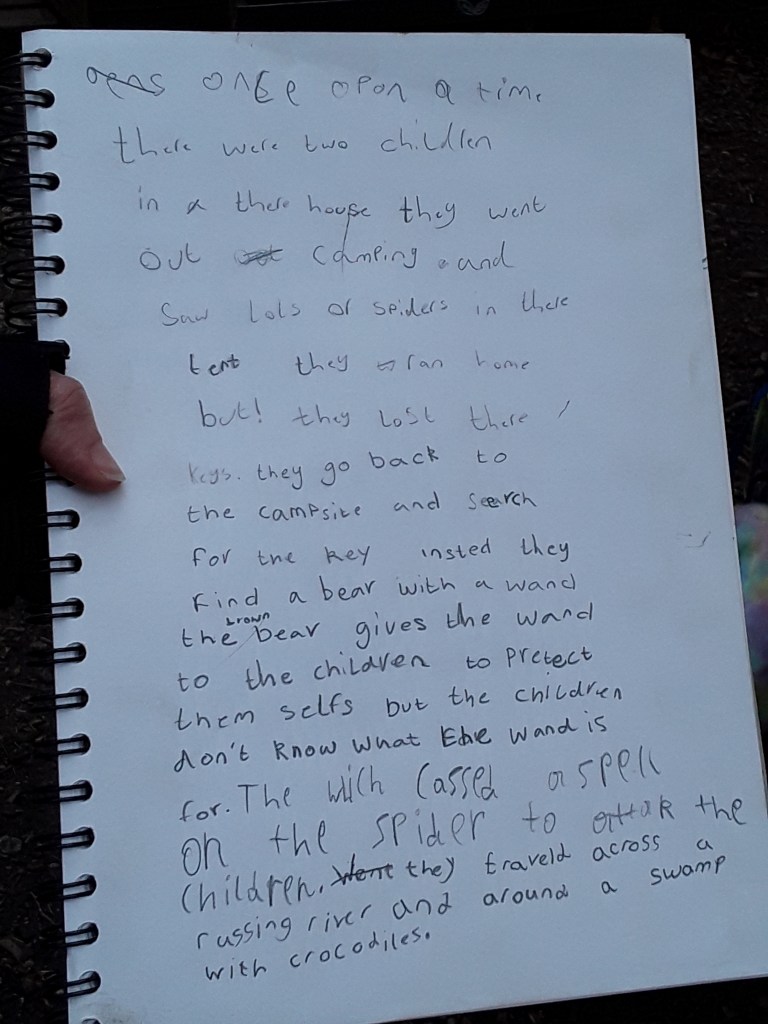 once opon a time
there were two children
in a there house they went
out camping. and
Saw lots of spiders in there
tent they ran home
but! they lost there
keys. they go back to
the campsite and search
for the key insted they
find a bear with a wand
the brown bear gives the wand
to the children to pretect
them selfs but the children
don't know what the wand is
for. The wich cassed a spell
on the spider to attak the
children. they traveld across a
russing river and around a swamp
with crocodiles.